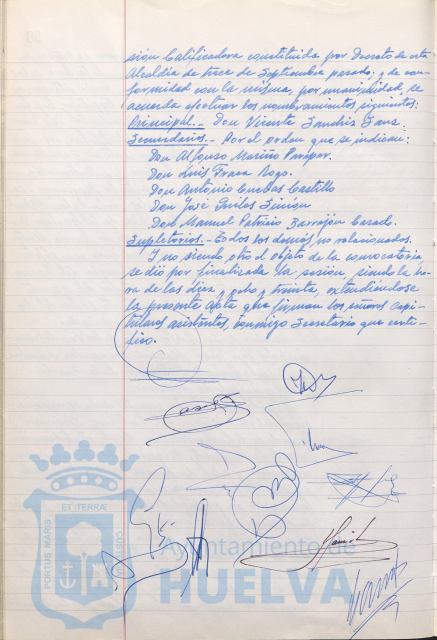 sión Calificadora constituida por Decreto de esta
Alcaldía de trece de Septiembre pasado; y de con-
formidad con la misma, por unanimidad, se
acuerda efectuar los nombramientos siguientes:
Principal.- Don Vicente Sanchis
Secundarios.- Por el orden que se indican:
Don Alfonso Mariño
Don Luis
Don Antonio Castillo
Don José Simón
Don Manuel Patricio Barrajón Casado.
Supletorios.- Todos los demás no relacionados.
Y no siendo otro el objeto de la convocatoria
se dió por finalizada la sesión, siendo la ho-
ra de las diez y ocho y treinta, extendiéndose
la presente Acta que firman los señores Capi-
tulares asistentes, conmigo Secretario que certi-
fico.
ET TERRÆ
PORTUS MARIS
CUSTODIA
Ayuntamiento de
HUELVA